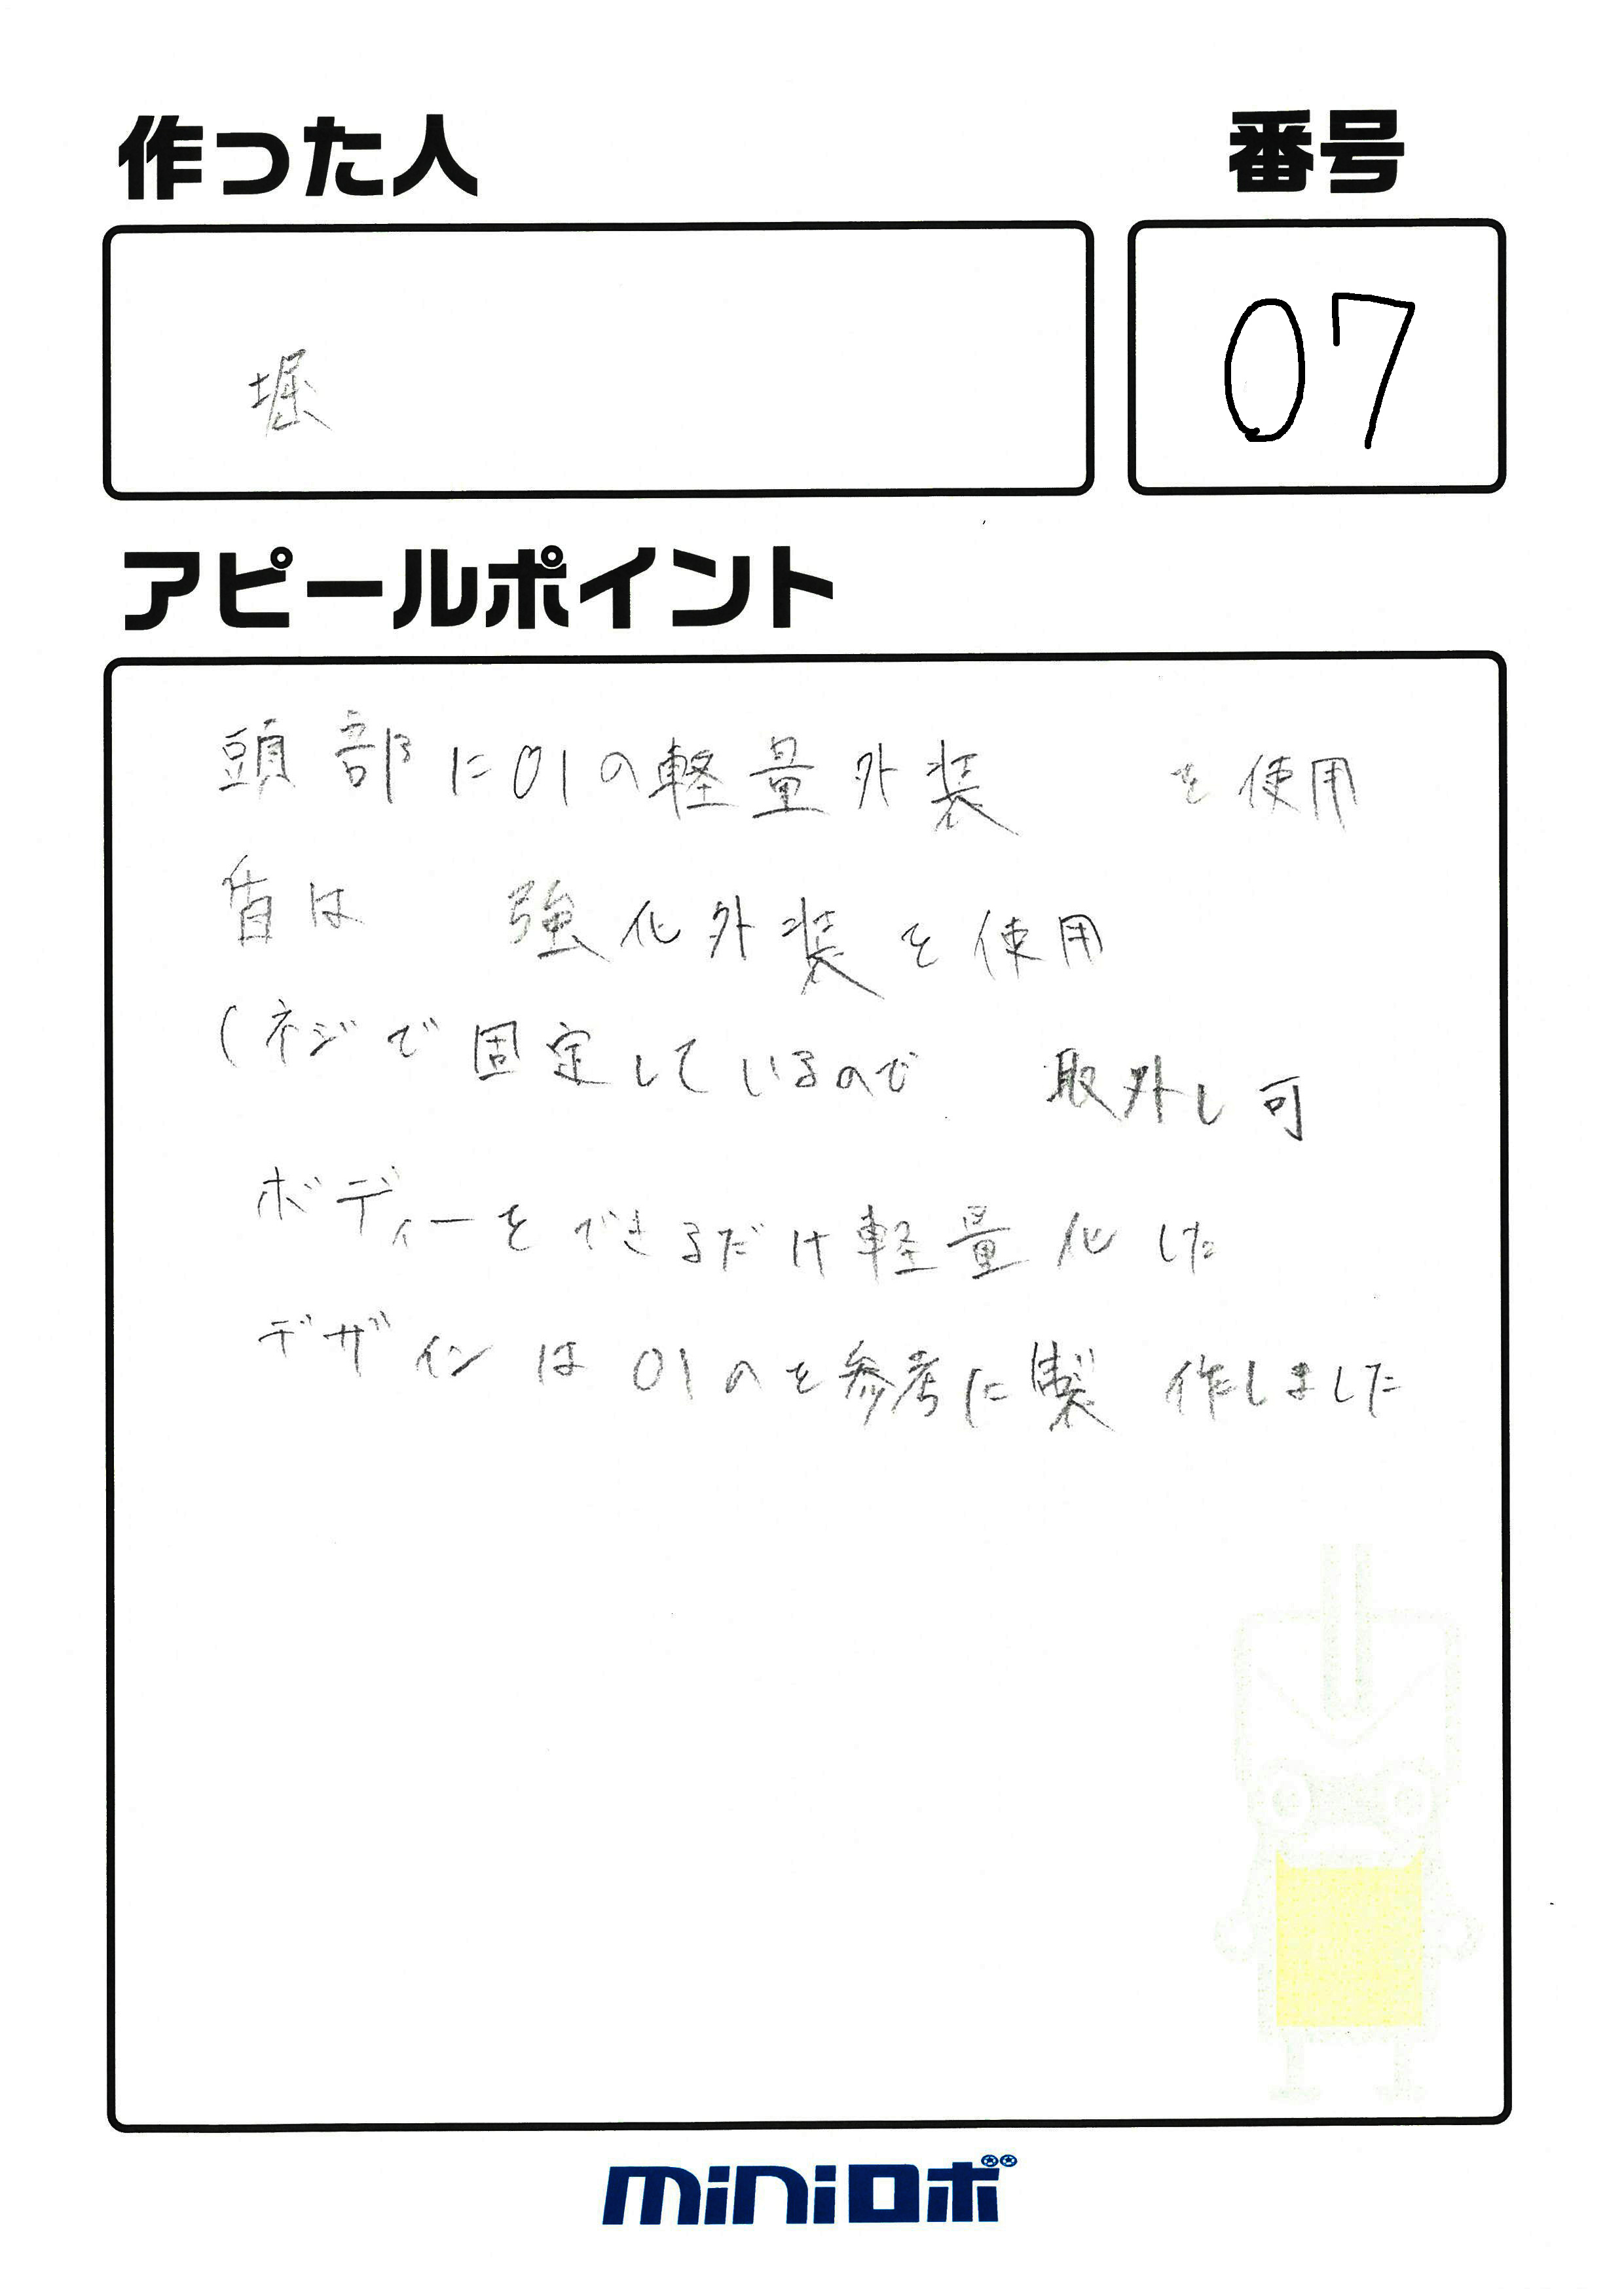 作った人
番号
堀
07
アピールポイント
頭部に01の軽量外装 を使用
は 強化外装を使用
(ネジで固定しているので 取外し可
ボディーをできるだけ軽量化した
デザインは01のを参考に製作しました
miniロボ